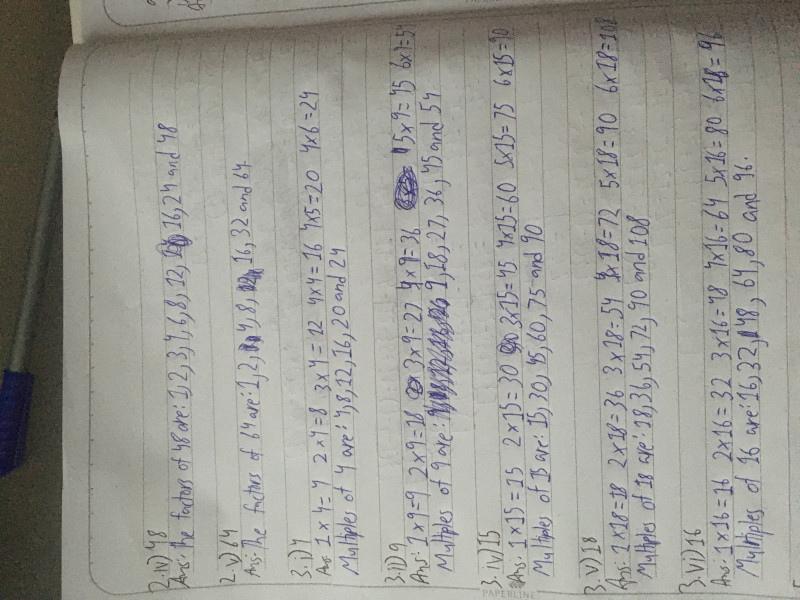 2.iv) 48
Ans: The factors of 48 are: 1, 2, 3, 4, 6, 8, 12, 16, 24 and 48
2.v) 64
Ans: The factors of 64 are: 1, 2, 4, 8, 16, 32 and 64
3.i) 4
Ans: 1x4=4 2x4=8 3x4=12 4x4=16 4x5=20 4x6=24
Multiples of 4 are: 4, 8, 12, 16, 20 and 24
3.ii) 9
Ans: 1x9=9 2x9=18 3x9=27 4x9=36 5x9=45 6x9=54
Multiples of 9 are: 9, 18, 27, 36, 45 and 54
3.iv) 15
Ans: 1x15=15 2x15=30 3x15=45 4x15=60 5x15=75 6x15=90
Multiples of 15 are: 15, 30, 45, 60, 75 and 90
3.v) 18
Ans: 1x18=18 2x18=36 3x18=54 4x18=72 5x18=90 6x18=108
Multiples of 18 are: 18, 36, 54, 72, 90 and 108
3.vi) 16
Ans: 1x16=16 2x16=32 3x16=48 4x16=64 5x16=80 6x18=96
Multiples of 16 are: 16, 32, 48, 64, 80 and 96.
PAPERLINE